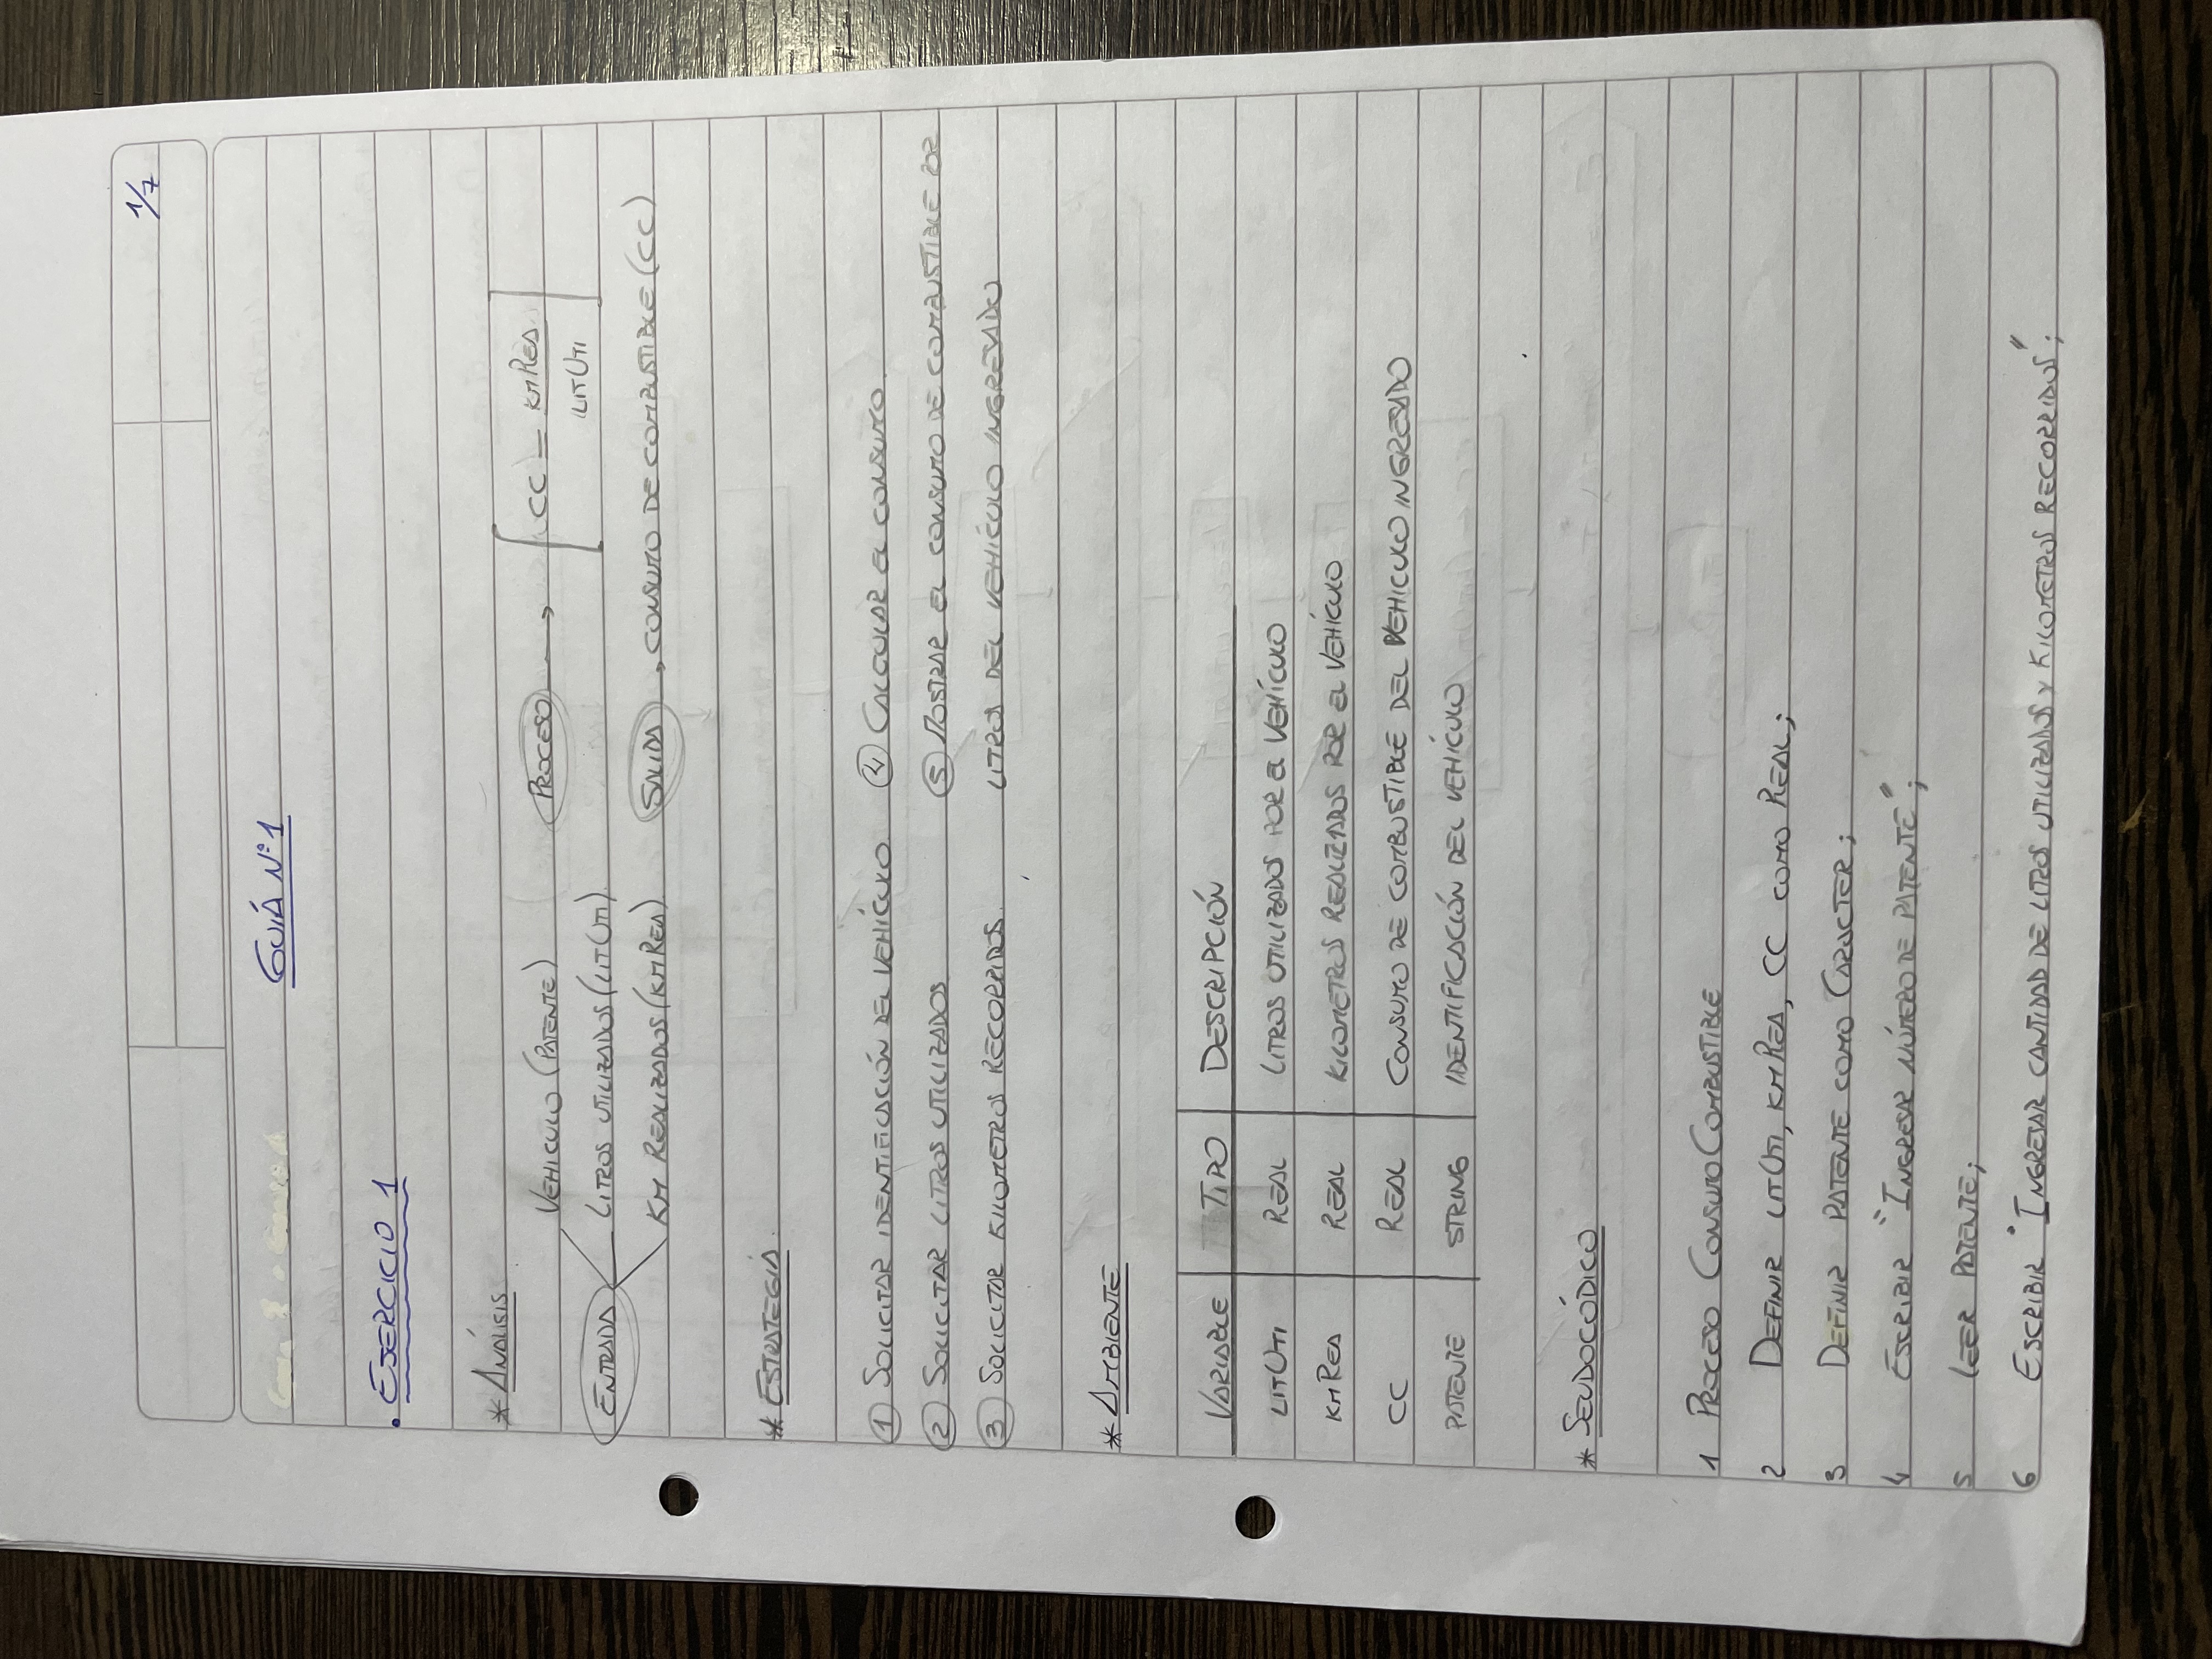 1/7
GUÍA Nº1
. EJERCICIO 1
* ANÁLISIS
VEHICULO (PATENTE)
ENTRADA
LITROS UTILIZADOS (LITUTI)
KM REALIZADOS (KMREA)
PROCESO → [CC = KMREA / LITUTI]
SALIDA → CONSUMO DE COMBUSTIBLE (CC)
* ESTRATEGIA
① SOLICITAR IDENTIFICACIÓN DEL VEHÍCULO
② SOLICITAR LITROS UTILIZADOS
③ SOLICITAR KILOMETROS RECORRIDOS
④ CALCULAR EL CONSUMO
⑤ MOSTRAR EL CONSUMO DE COMBUSTIBLE POR
LITROS DEL VEHÍCULO INGRESADO
* AMBIENTE
VARIABLE TIPO DESCRIPCIÓN
LITUTI REAL LITROS UTILIZADOS POR EL VEHÍCULO
KMREA REAL KILOMETROS REALIZADOS POR EL VEHÍCULO
CC REAL CONSUMO DE COMBUSTIBLE DEL VEHICULO INGRESADO
PATENTE STRING IDENTIFICACIÓN DEL VEHÍCULO
* SEUDOCÓDICO
1 PROCESO CONSUMOCOMBUSTIBLE
2 DEFINIR LITUTI, KMREA, CC COMO REAL;
3 DEFINIR PATENTE COMO CARACTER;
4 ESCRIBIR "INGRESAR NÚMERO DE PATENTE";
5 LEER PATENTE;
6 ESCRIBIR "INGRESAR CANTIDAD DE LITROS UTILIZADOS Y KILOMETROS RECORRIDOS";